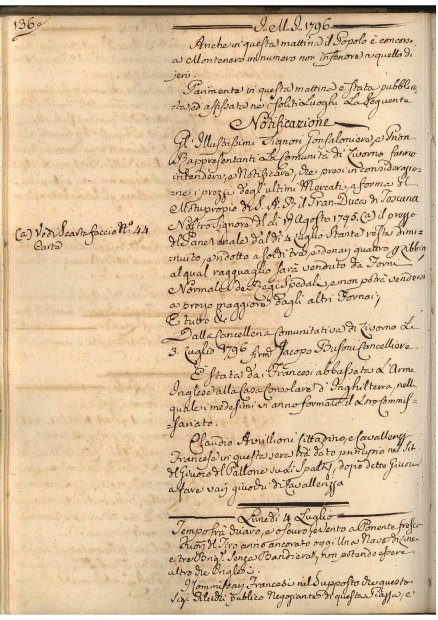 136.
J. M. J. 1796
Anche in questa mattina il Popolo è concor-
so a Montenero in numero non inferiore a quello di
jeri.
Parimente in questa mattina è stata pubblica-
ta ed affissata ne i soliti Luoghi La seguente
Notificazione
Gl' Illustrissimi Signori Gonfaloniere, e Priori
Rappresentanti La Comunità di Livorno fanno
intendere, e Notificare, che presi in considerazio-
ne i prezzi degl' ultimi Mercati, a forma del
Motuproprio di S. A. R. il Gran-Duca di Toscana
Nostro Signore del dì Agosto 1795. (a) il prezzo
del Pane Venale dal dì 4 Luglio stante resta dimi-
nuito, e ridotto a soldi tre, e denari quattro
al qual ragguaglio sarà venduto da Forni
Normali, e Regi Spedali, e non potrà vendersi
a prezzo maggiore dagli altri Fornai;
E tutto &
Dalla Cancelleria Comunitativa di Livorno Li
3. Luglio 1796 Jacopo Busoni Cancelliere
(a) Vedi Scartafaccio N.° 44
Carta
È stata dai Francesi abbassata l' Arme
Inglese alla Casa Consolare d' Inghilterra, nella
quale i medesimi vi anno formato il Loro Commis-
sariato.
Claudio Avrillioni Cittadino, e Cavallerizzo
Francese in questa sera ha dato principio nel Sit
del Giuoco del Pallone su di Spalti, dopo detto Giuoco
a fare varj giuochi di Cavallerizza
Lunedì 4 Luglio
Tempo fra chiaro, e oscuro, e vento a Ponente fresco
Fuori del Tiro anno ancorato oggi una Nave di Linea
e tre senza Bandiera, non potendo essere
altro che Inglesi.
I Commissarj Francesi nel supposto che questo
Sig. publico Negoziante di questa Piazza, e